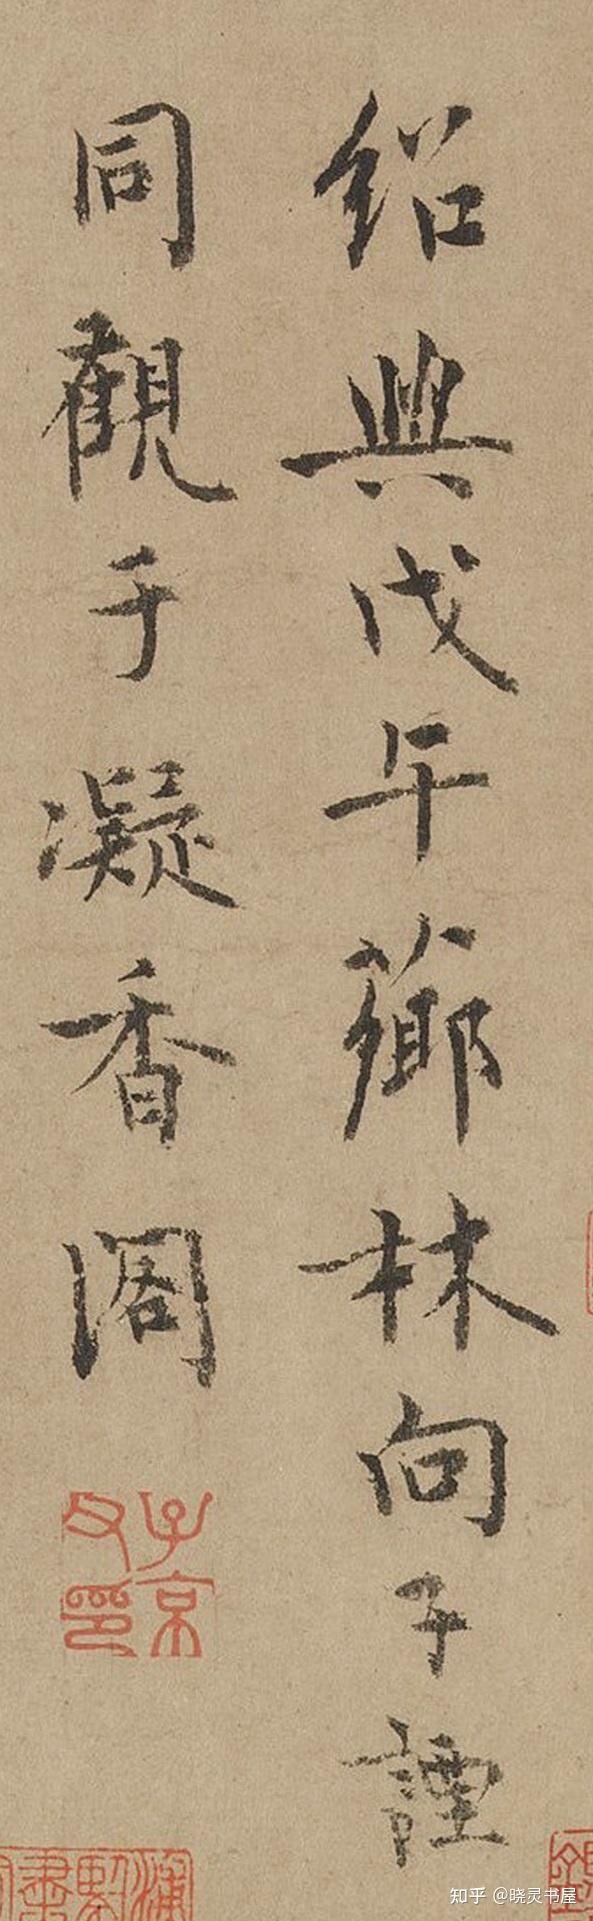 紹興戊午薌林向子諲
同觀于凝香閣
子京
父印
知乎 @晓灵书屋